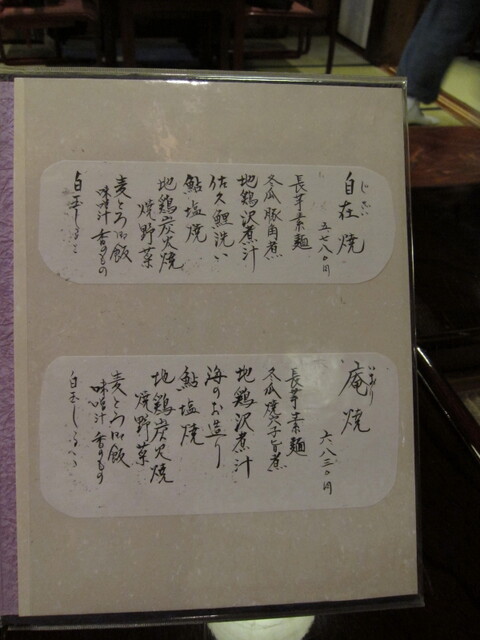 じざい
自在焼
五七八〇円
長芋素麺
冬瓜豚角煮
地鶏沢煮汁
佐久鯉洗い
鮎塩焼
地鶏炭火焼
焼野菜
麦とろ御飯
味噌汁 香のもの
白玉しるこ
いおり
庵焼
六八三〇円
長芋素麺
冬瓜焼穴子旨煮
地鶏沢煮汁
海のお造り
鮎塩焼
地鶏炭火焼
焼野菜
麦とろ御飯
味噌汁 香のもの
白玉しるこ